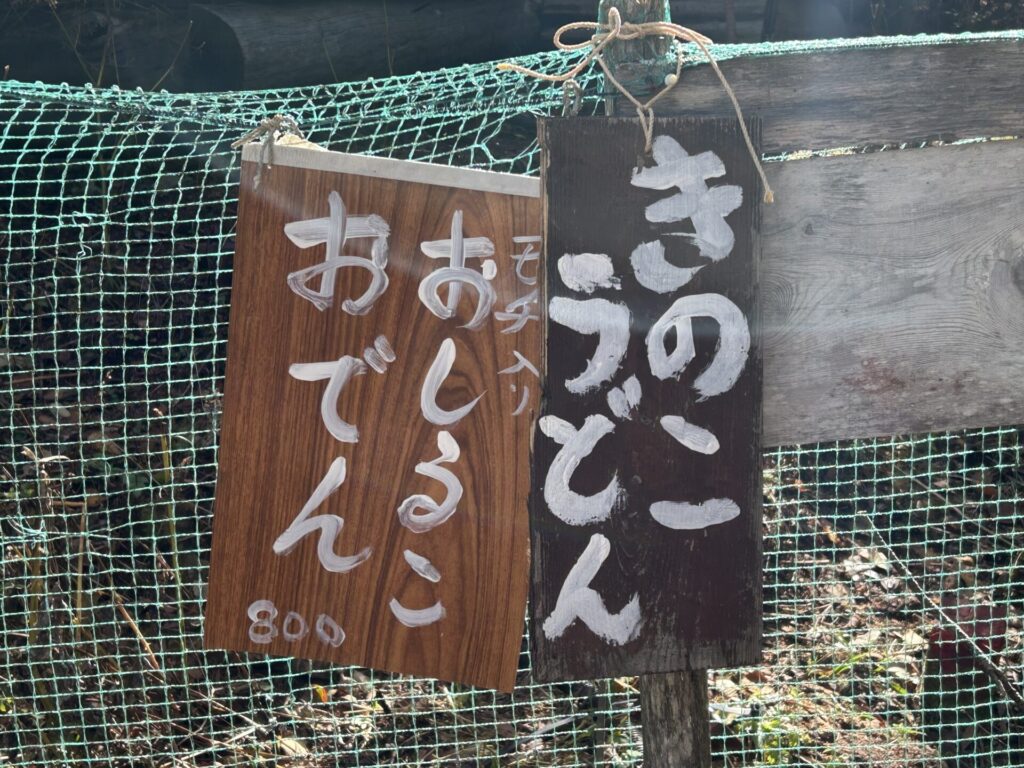 きのこ
うどん
モチ入り
おしるこ
おでん
800